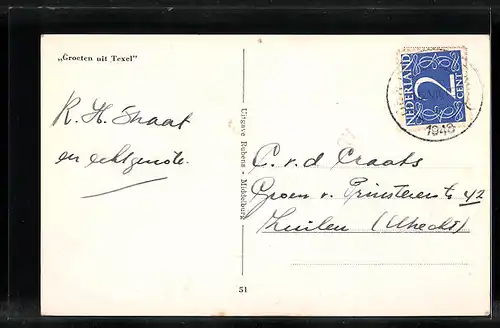 „Groeten uit Texel"
R. H. Straat
en echtgenote.
Uitgave Rubens - Middelburg
51
NEDERLAND
2
CENT
1948
C. v. d. Craats
Groen v. Prinsterenstr 42
Zuilen (Utrecht)